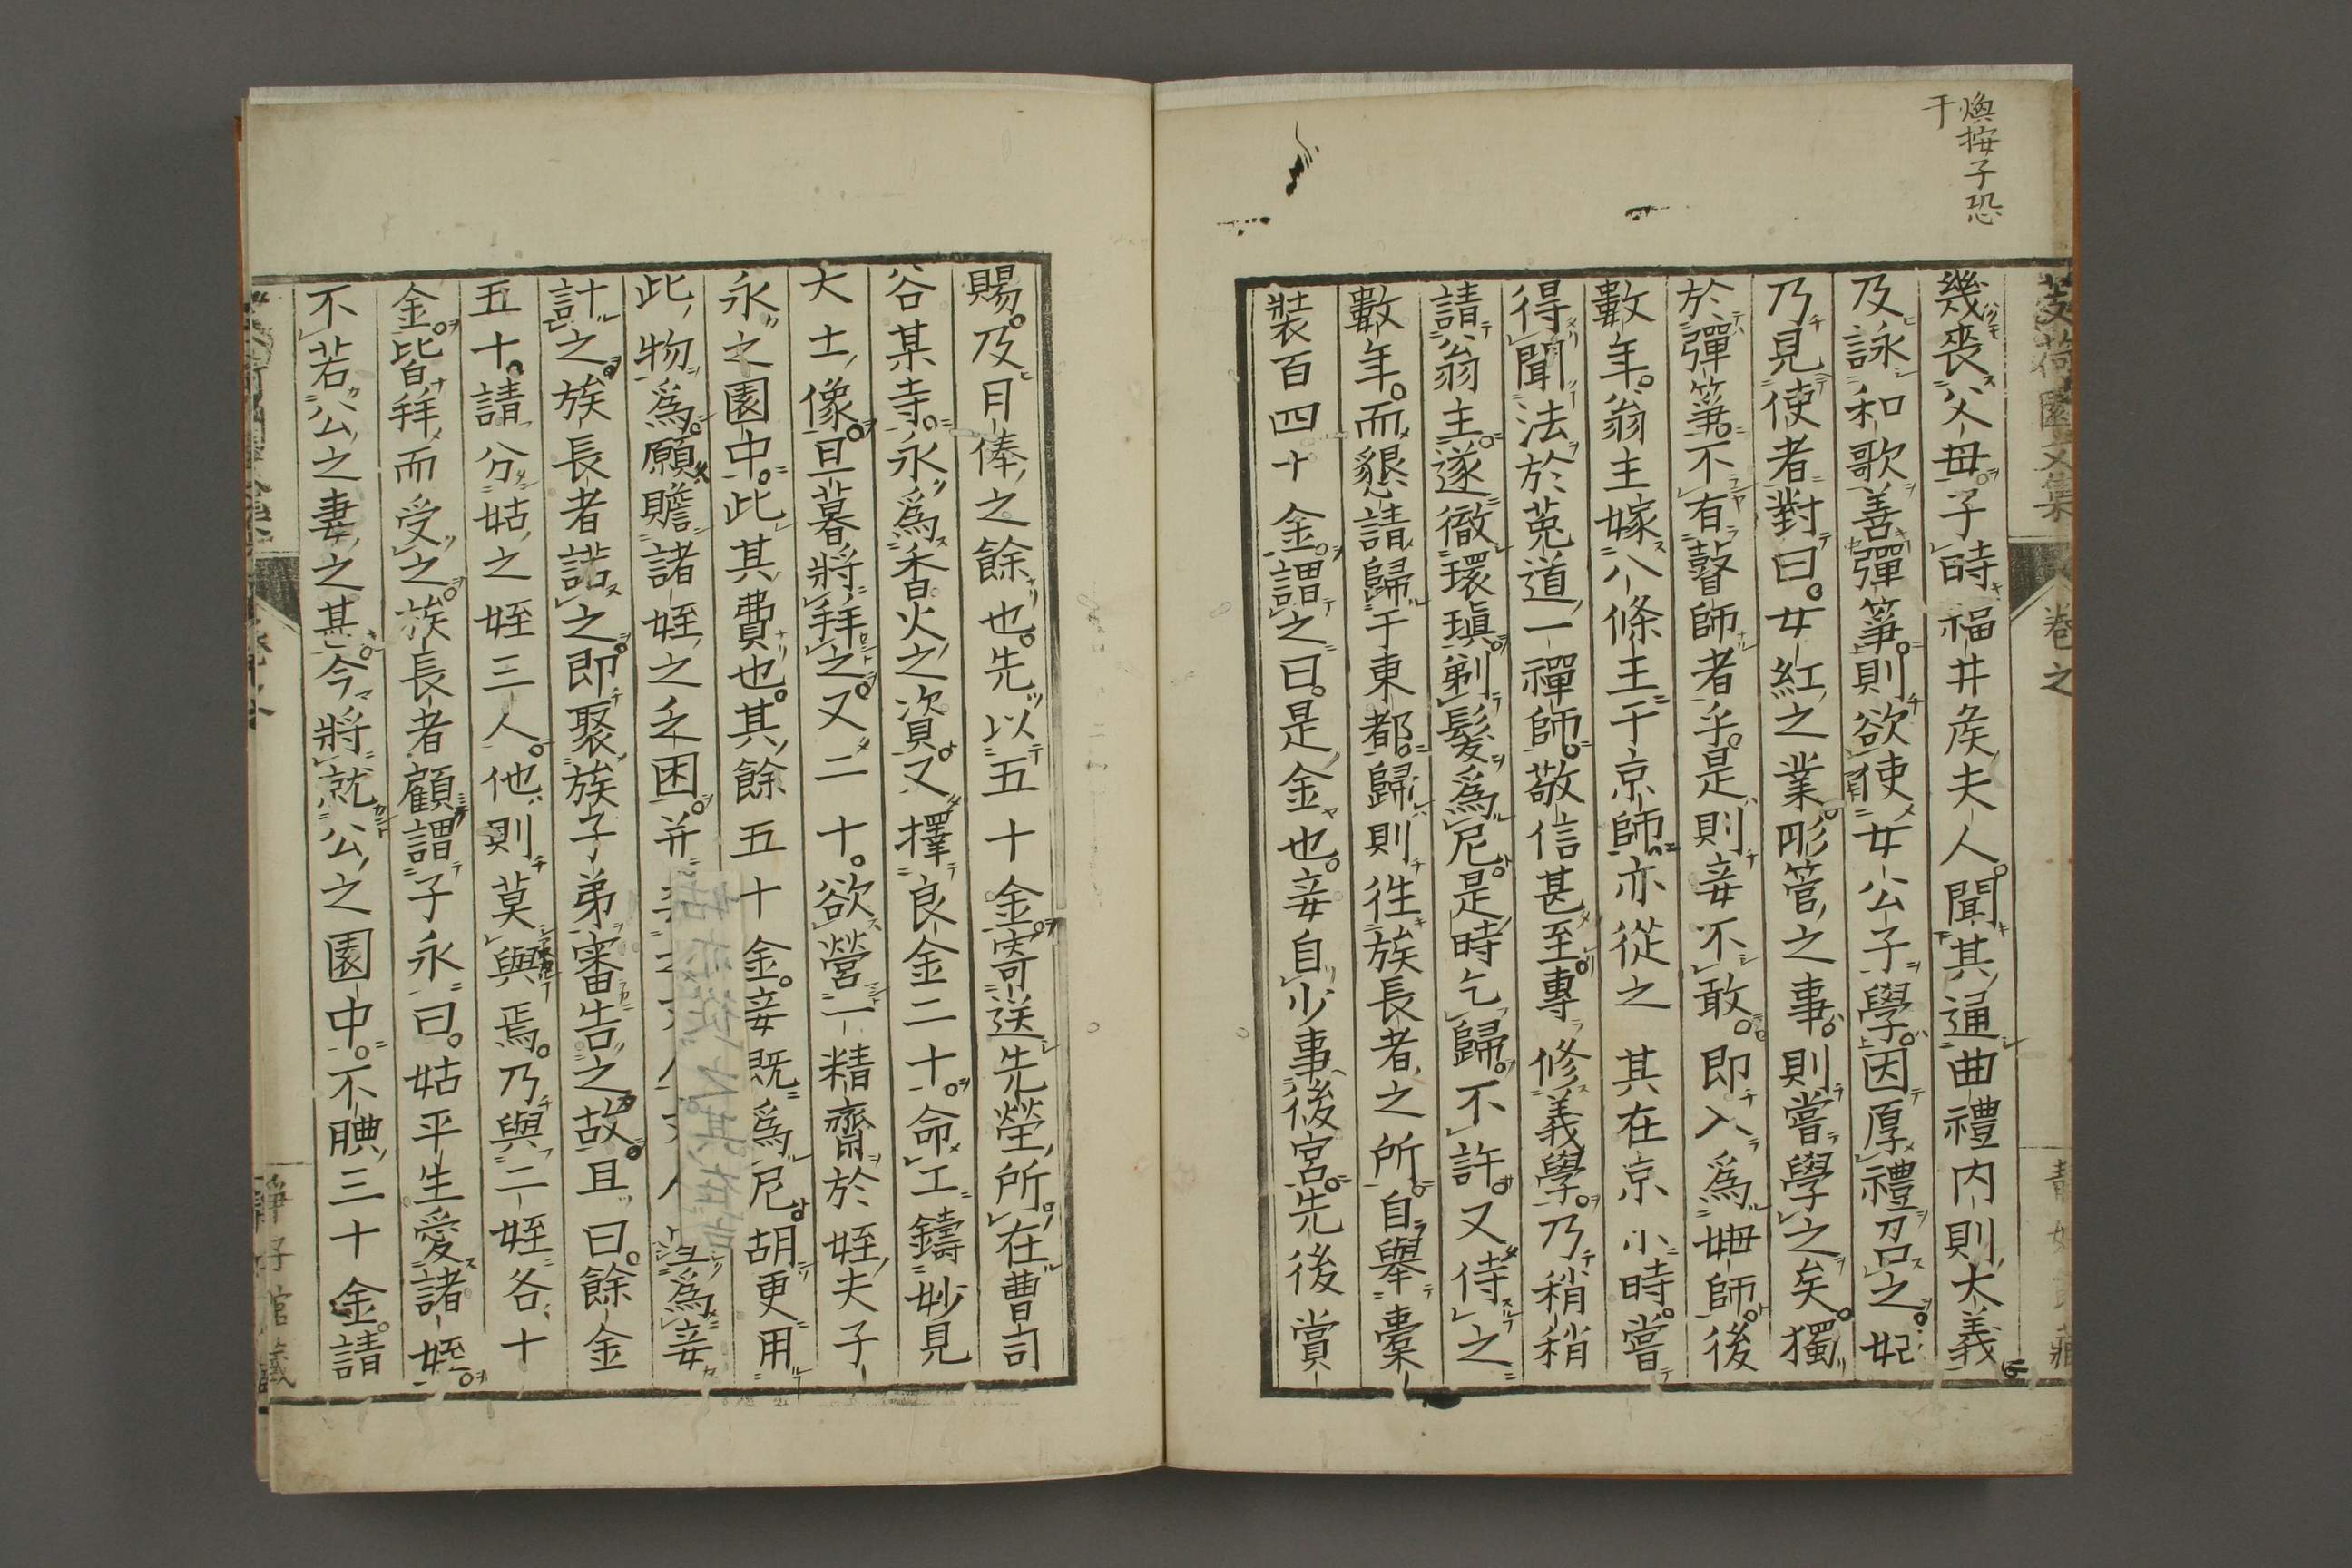 煥按子恐
干
芰荷園文集
卷之
幾喪父母子時福井矦夫人聞其通曲禮内則大義
及詠和歌善彈箏則欲使女公子學因厚禮召之妃
乃見使者對曰女紅之業彤管之事則嘗學之矣獨
於彈箏不有瞽師者乎是則妾不敢即入爲姆師後
數年翁主嫁八條王于京師亦從之其在京小時嘗
得聞法於菟道一禪師敬信甚至專修義學乃稍稍
請翁主遂徹環瑱剃髮爲尼是時乞歸不許又侍之
數年而懇請歸于東都歸則往族長者之所自舉橐
裝百四十金謂之曰是金也妾自少事後宮先後賞
賜及月俸之餘也先以五十金寄送先塋所在曹司
谷某寺永爲香火之資又擇良金二十命工鑄妙見
大士像旦暮將拜之又二十欲營一精齋於姪夫子
永之園中此其費也其餘五十金妾既爲尼胡更用
此物爲願贍諸姪之乏困并爲妾
計之族長者諾之即聚族子弟審告之故且曰餘金
五十請分姑之姪三人他則莫與焉乃與二姪各十
金皆拜而受之族長者顧謂子永曰姑平生愛諸姪
不若公之妻之甚今將就公之園中不腆三十金請